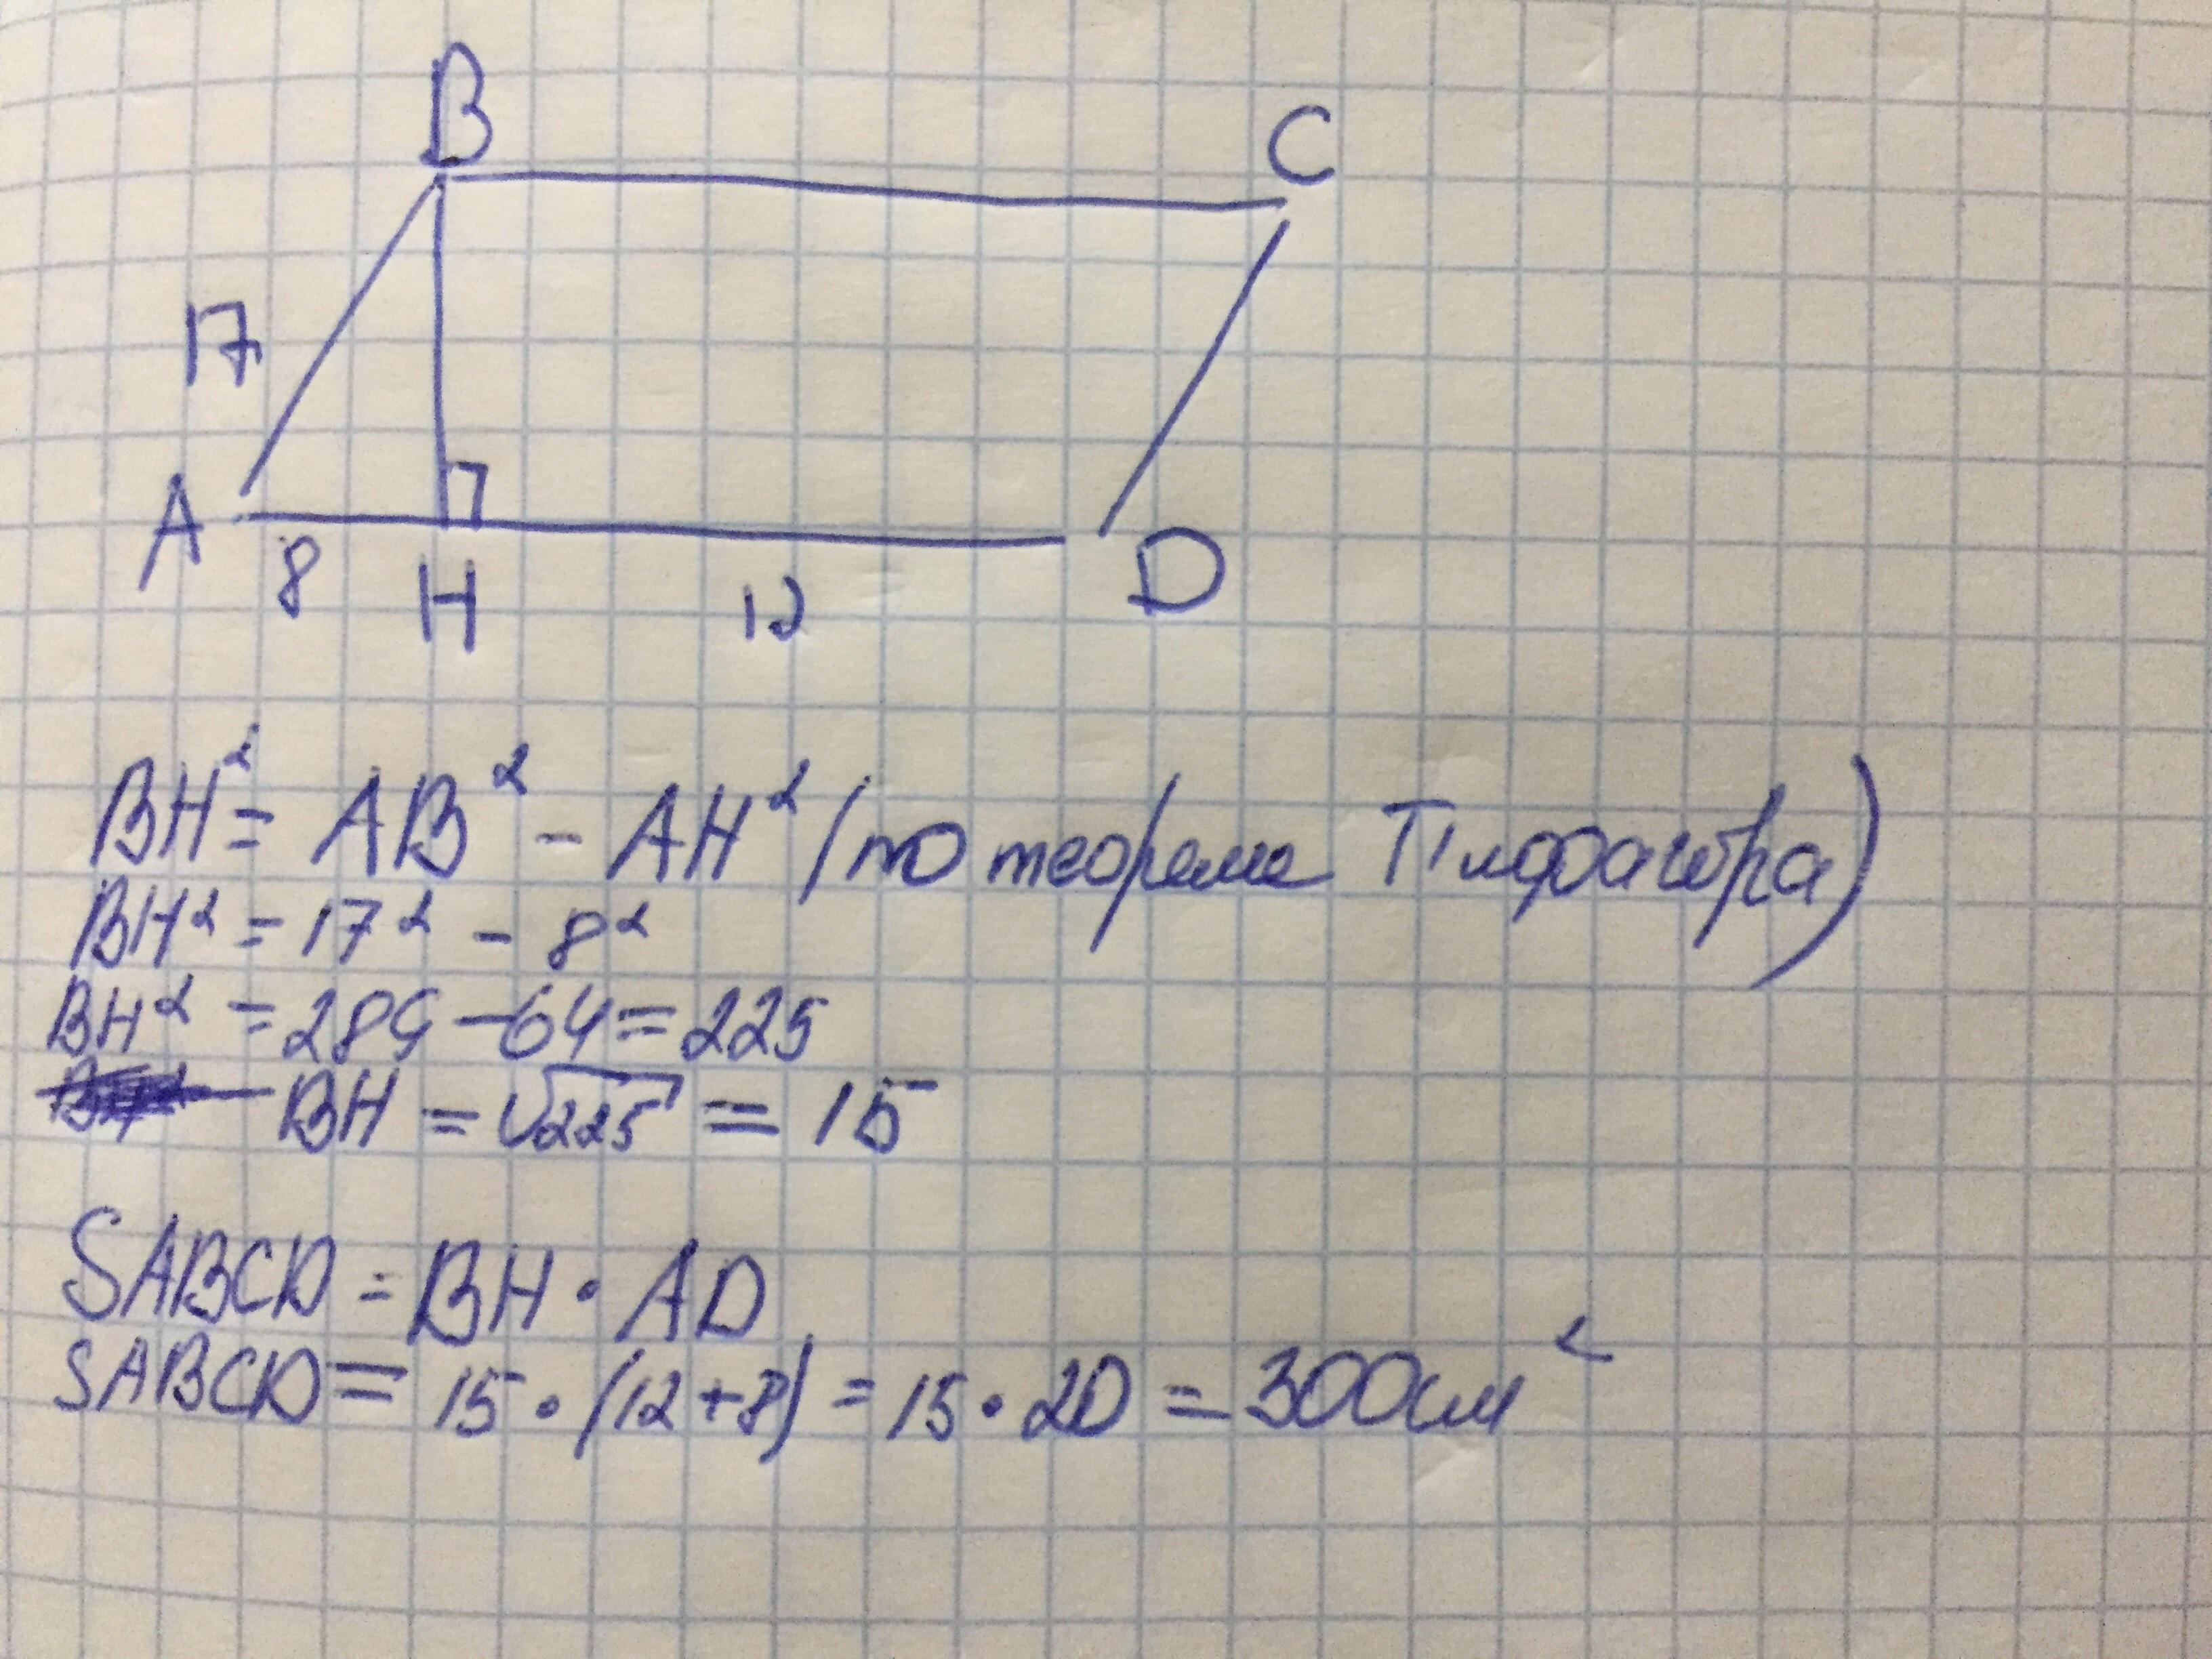 B
C
17
A
8
H
12
D
BH² = AB² - AH² (по теореме Пифагора)
BH² = 17² - 8²
BH² = 289 - 64 = 225
BH = √225 = 15
SABCD = BH · AD
SABCD = 15 · (12+8) = 15 · 20 = 300см²